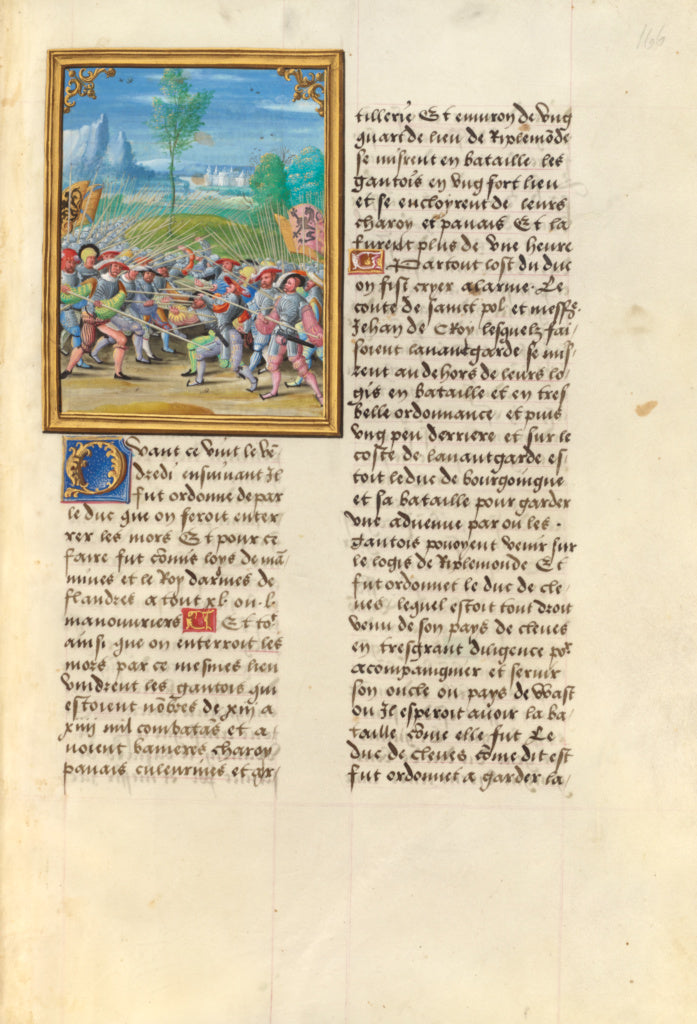 166
Quant ce vint le vē-
dredi ensuivant Il
fut ordonne de par
le duc que on feroit enter
rer les mors Et pour ce
faire fut cōmis loys de mā-
mines et le Roy darmes de
flandres a tout xl. ou .l.
manouvriers Et tot
ainsi que on enterroit les
mors par ce mesmes lieu
vindrent les gantois qui
estoient nōbres de xiii a
xiiii mil combatās et a-
voient banieres charoy
pavais culeurines et ar-
tillerie Et environ de ung
quart de lieu de Riplemōde
se misrent en bataille les
gantois en ung fort lieu
et se encloyrent de leurs
charoy et pavais Et la
furent plus de une heure
Partout lost du duc
on fist cryer alarme. Le
conte de sainct pol et messe
Jehan de Croy lesquelz fai-
soient lavantgarde se mis-
rent au dehors de leurs lo-
gis en bataille et en tres
belle ordonnance et puis
ung peu derriere et sur le
coste de lavantgarde es-
toit le duc de bourgoingne
et sa bataille pour garder
une advenue par ou les
gantois povoyent venir sur
le logis de Riplemonde Et
fut ordonnet le duc de cle-
ves lequel estoit tout droit
venu de son pays de cleves
en tresgrant diligence por
acompaingnier et servir
son oncle ou pays de wast
ou Il esperoit avoir la ba-
taille cōme elle fut Le
duc de cleves cōme dit est
fut ordonnet a garder la